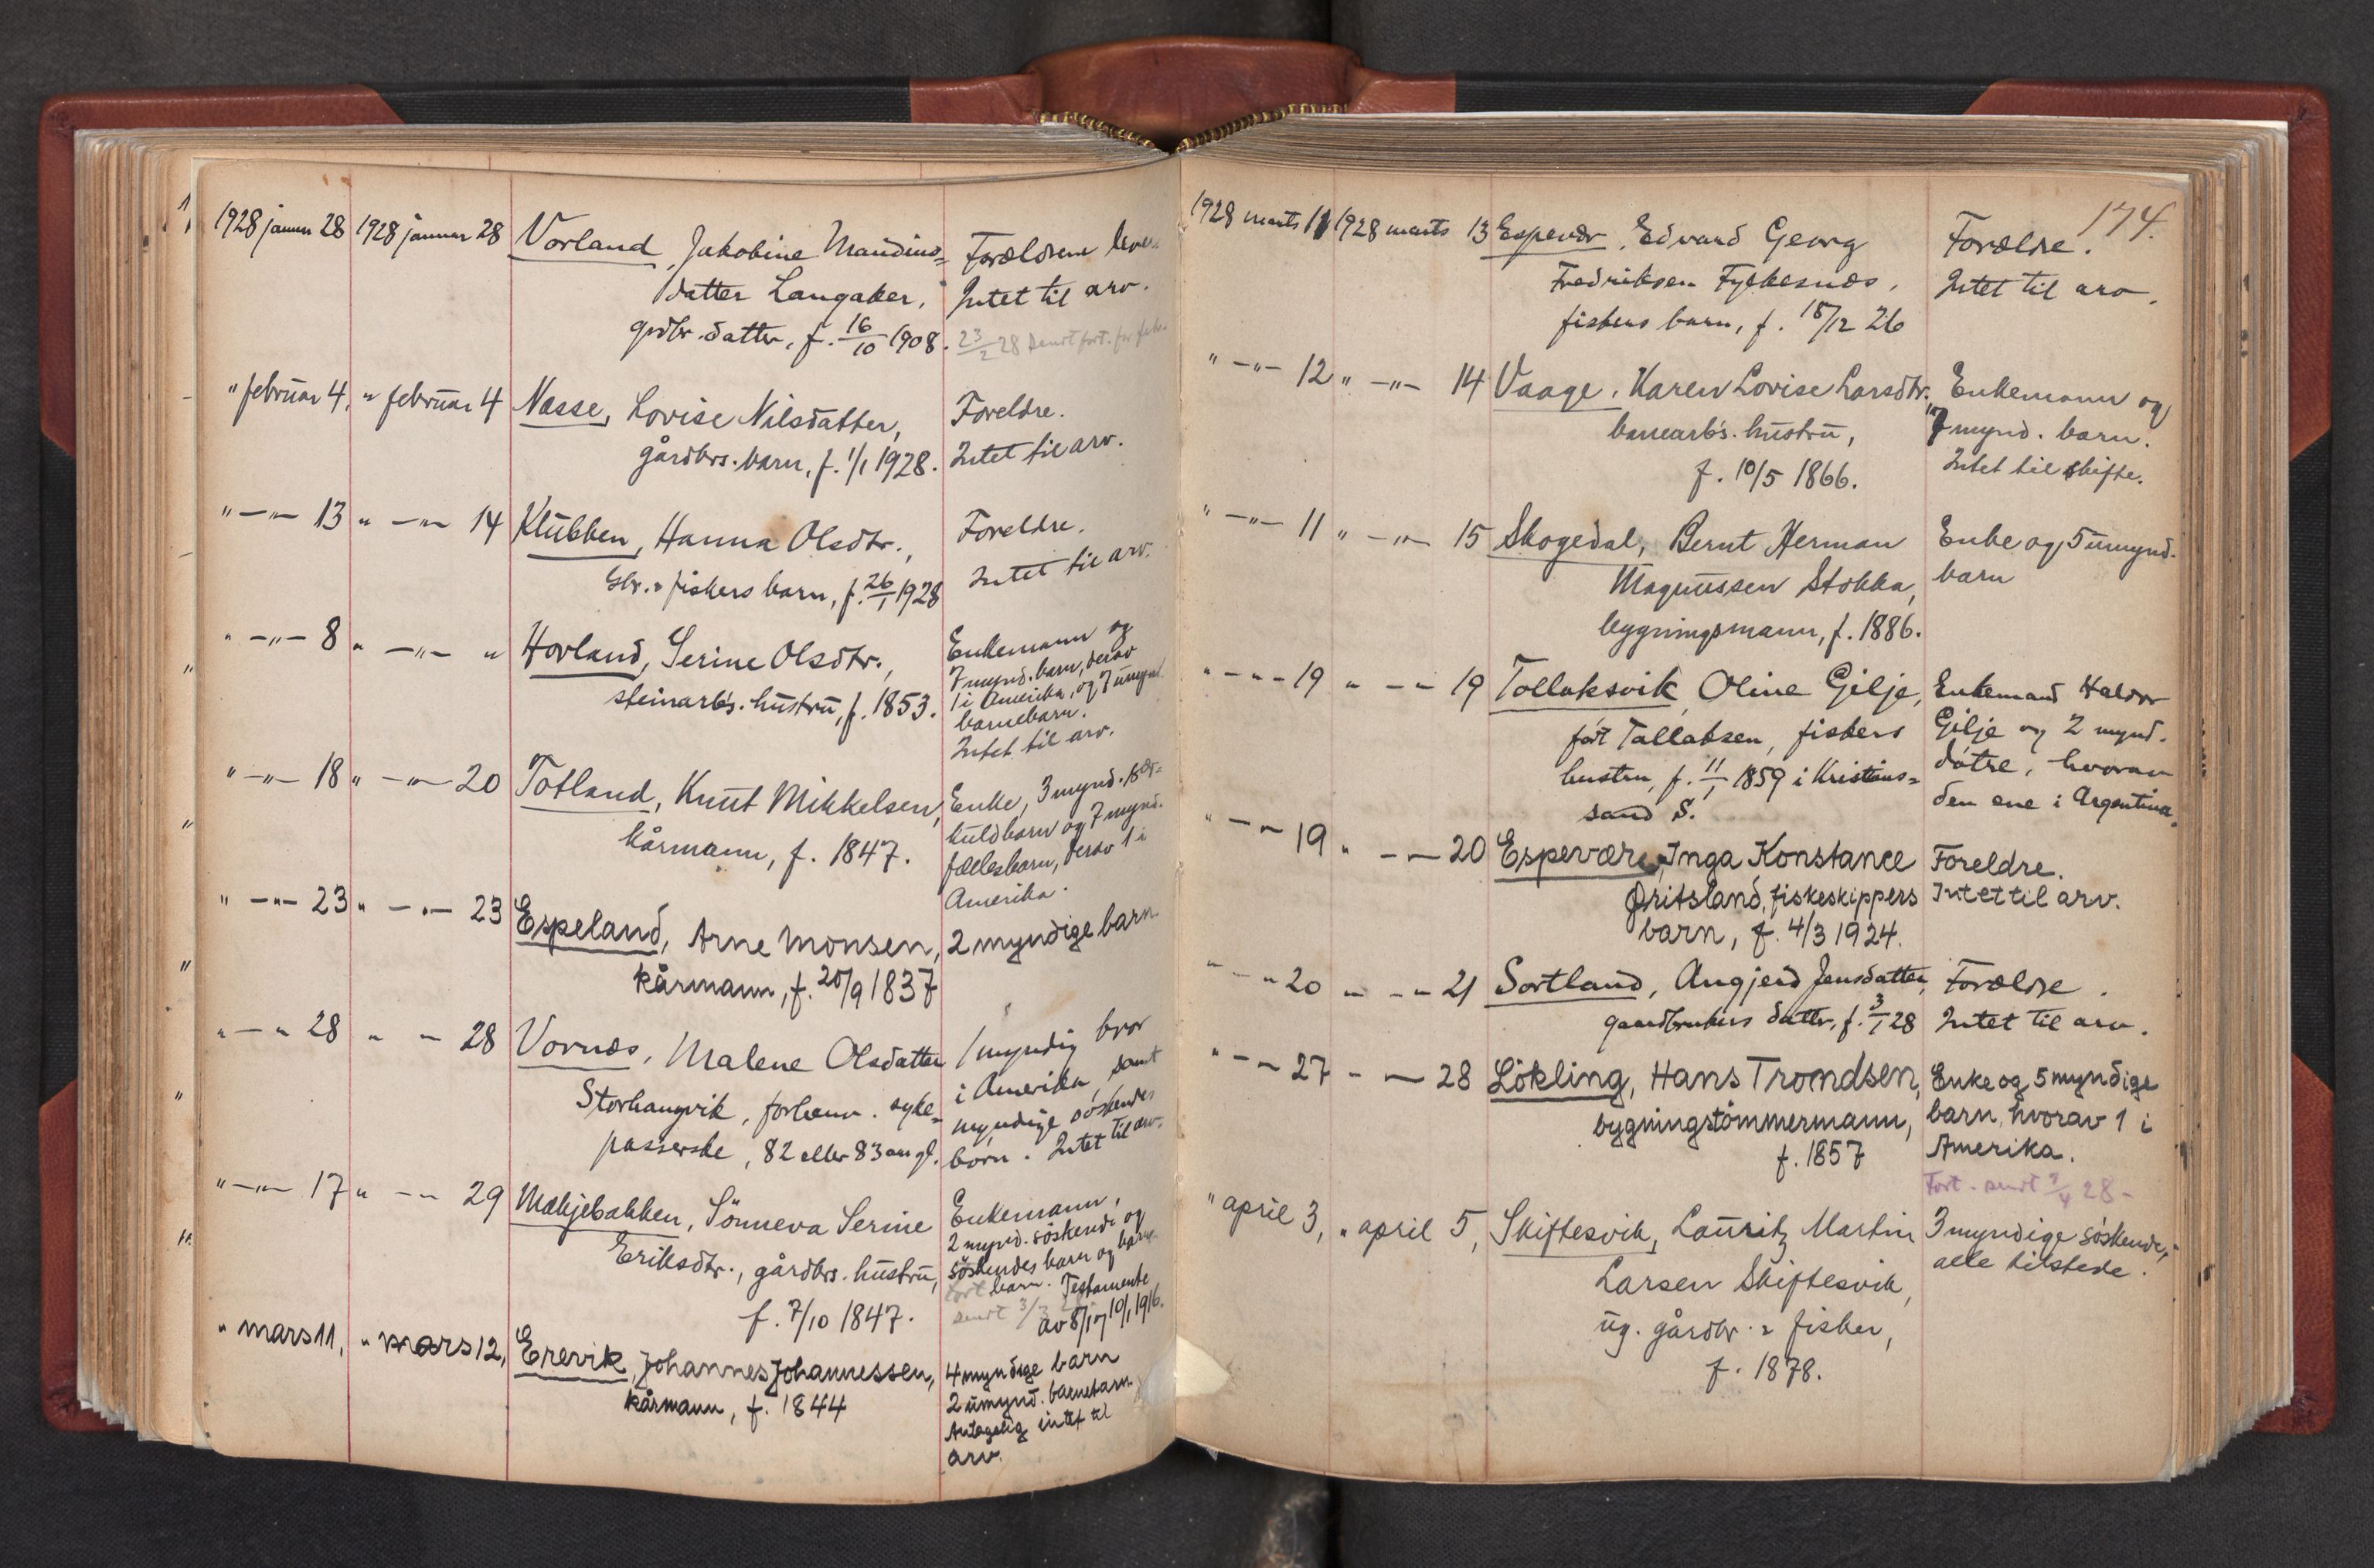 1928 januar 28 1928 januar 28 Vorland, Jakobine Maudins= Forældrene lever
datter Langaker, Intet til arv.
grdbr. datter, f. 16/10 1908. 23/2 28 sendt fort. for
" februar 4, " februar 4 Næsse, Lovise Nilsdatter, Foreldre.
gårdbrs. barn, f. 1/1 1928. Intet til arv.
" —"— 13 " —"— 14 Klubben, Hanna Olsdtr., Foreldre.
Gbr. & fiskers barn, f. 26/1 1928 Intet til arv.
" —"— 8 " —"— " Hovland, Serine Olsdtr., Enkemann og
steinarb's. hustru, f. 1853. 7 mynd. barn, derav
1 i Amerika, og 7 umynd.
barnebarn.
Intet til arv.
" —"— 18 " —"— 20 Totland, Knut Mikkelsen, Enke, 3 mynd. sær=
kårmann, f. 1847. kuldbarn og 7 mynd.
fællesbarn, derav 1 i
Amerika.
" —"— 23 " —"— 23 Espeland, Arne Monsen, 2 myndige barn
kårmann, f. 20/9 1837
" — " 28 " — " 28 Vornæs, Malene Olsdatter 1 myndig bror
Storhaugvik, forhenv. syke= i Amerika, samt
passerske, 82 eller 83 aar gl. myndige søskendes
børn. Intet til arv.
" —"— 17 " — " 29 Mækjebakken, Sønneva Serine Enkemann,
Eriksdtr., gårdbrs. hustru, 2 mynd. søskende og
f. 7/10 1847. søskendes barn og barne-
barn. Testamente
sendt 3/3 av 8/10/1 1916.
" mars 11, " mars 12, Erevik, Johannes Johannessen, 4 myndige barn
kårmann, f. 1844 2 umynd. barnebarn.
Antagelig intet til
arv.
174.
1928 marts 11 1928 marts 13 Espevær, Edvard Georg Forældre.
Fredriksen Fylkesnæs, Intet til arv.
fiskers barn, f. 15/12 26
" —"— 12 " —"— 14 Vaage, Karen Lovise Larsdtr. Enkemann og
banearb's. hustru, 7 mynd. barn.
f. 10/5 1866. Intet til skifte.
" —"— 11 " —"— 15 Skogedal, Bernt Herman Enke og 5 umynd.
Magnussen Stokka, barn
bygningsmann, f. 1886.
" — " — 19 " — " 19 Tollaksvik, Oline Gilje, Enkemand Haldor
født Tallaksen, fiskers Gilje og 2 mynd.
hustru, f. 11/1 1859 i Kristians= døtre, hvorav
sand S. den ene i Argentina.
" — " 19 " — " 20 Espevære, Inga Konstance Foreldre.
Øritsland, fiskeskippers Intet til arv.
barn, f. 4/3 1924.
" — " 20 " — " 21 Sortland, Angjerd Jensdatter, Forældre.
gaardbrukers datter, f. 3/1 28 Intet til arv.
" — " 27 " — " 28 Løkling, Hans Trondsen, Enke og 5 myndige
bygningstømmermann, barn, hvorav 1 i
f. 1857 Amerika.
Fort. sendt 28 -
" april 3, " april 5, Skiftesvik, Lauritz Martin 3 myndige søskende,
Larsen Skiftesvik, alle tilstede.
ug. gårdbr. & fisker,
f. 1878.